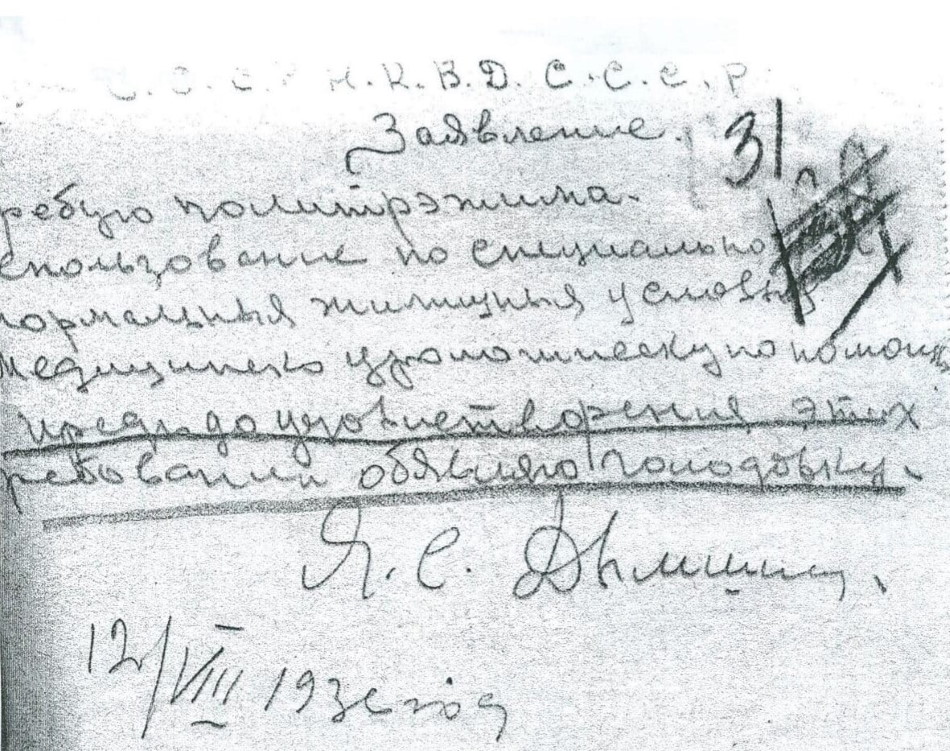 С.С.С.Р Н.К.В.Д. С.С.С.Р
Заявление.
31
ребую политрэжима.
спользование по специально
нормальныя жилищныя условия
медицинско урологическую помощь
предь до удовлетворения этих
ребовании обявляю голодовку.
Я. С.
12/VIII 1936 год